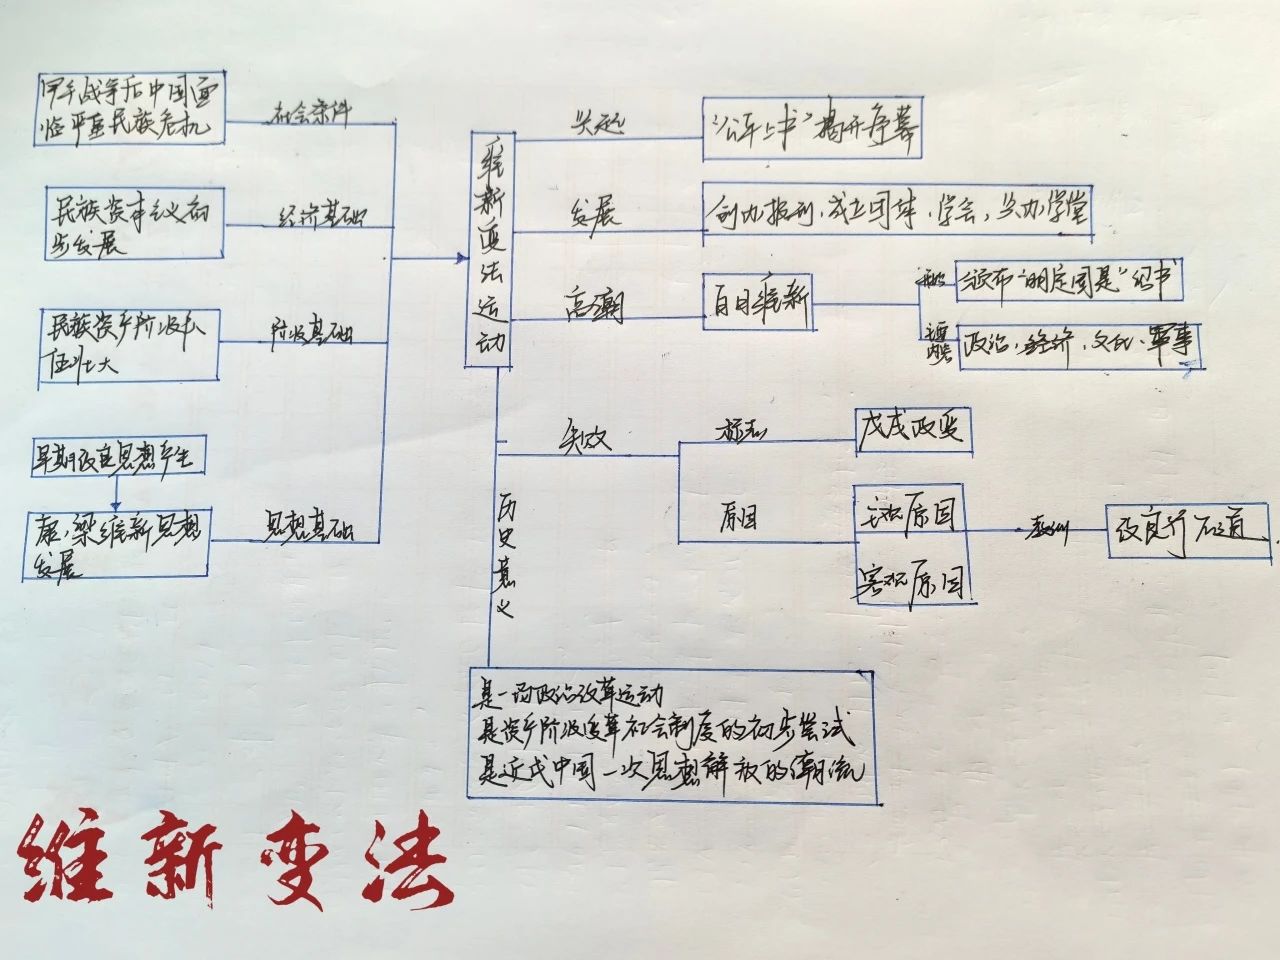 甲午战争后中国面
临严重民族危机
社会条件
民族资本主义初
步发展
经济基础
民族资产阶级队
伍壮大
阶级基础
早期改良思想产生
康、梁维新思想
发展
思想基础
维新变法运动
兴起
“公车上书”揭开序幕
发展
创办报刊、成立团体、学会、兴办学堂
高潮
百日维新
开始
颁布“明定国是”诏书
主要内容
政治、经济、文化、军事
失败
标志
戊戌政变
原因
主观原因
客观原因
教训
改良行不通
历史意义
是一场政治改革运动
是资产阶级变革社会制度的初步尝试
是近代中国一次思想解放的潮流
维新变法